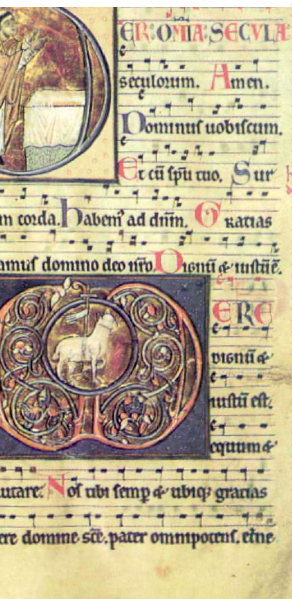 ER: OMIA: SECVLA
seculorum. Amen.
Dominus uobiscum.
Et cū spū tuo. Sur
m corda. Habem⁹ ad dn̄m. Gratias
amus domino deo nr̄o. Dignū & iustū ē.
ERE
dignū &
iustū est.
equum &
utare. Nos tibi semp & ubiq; gratias
ere domine scē. pater omnipotens. etn̄e